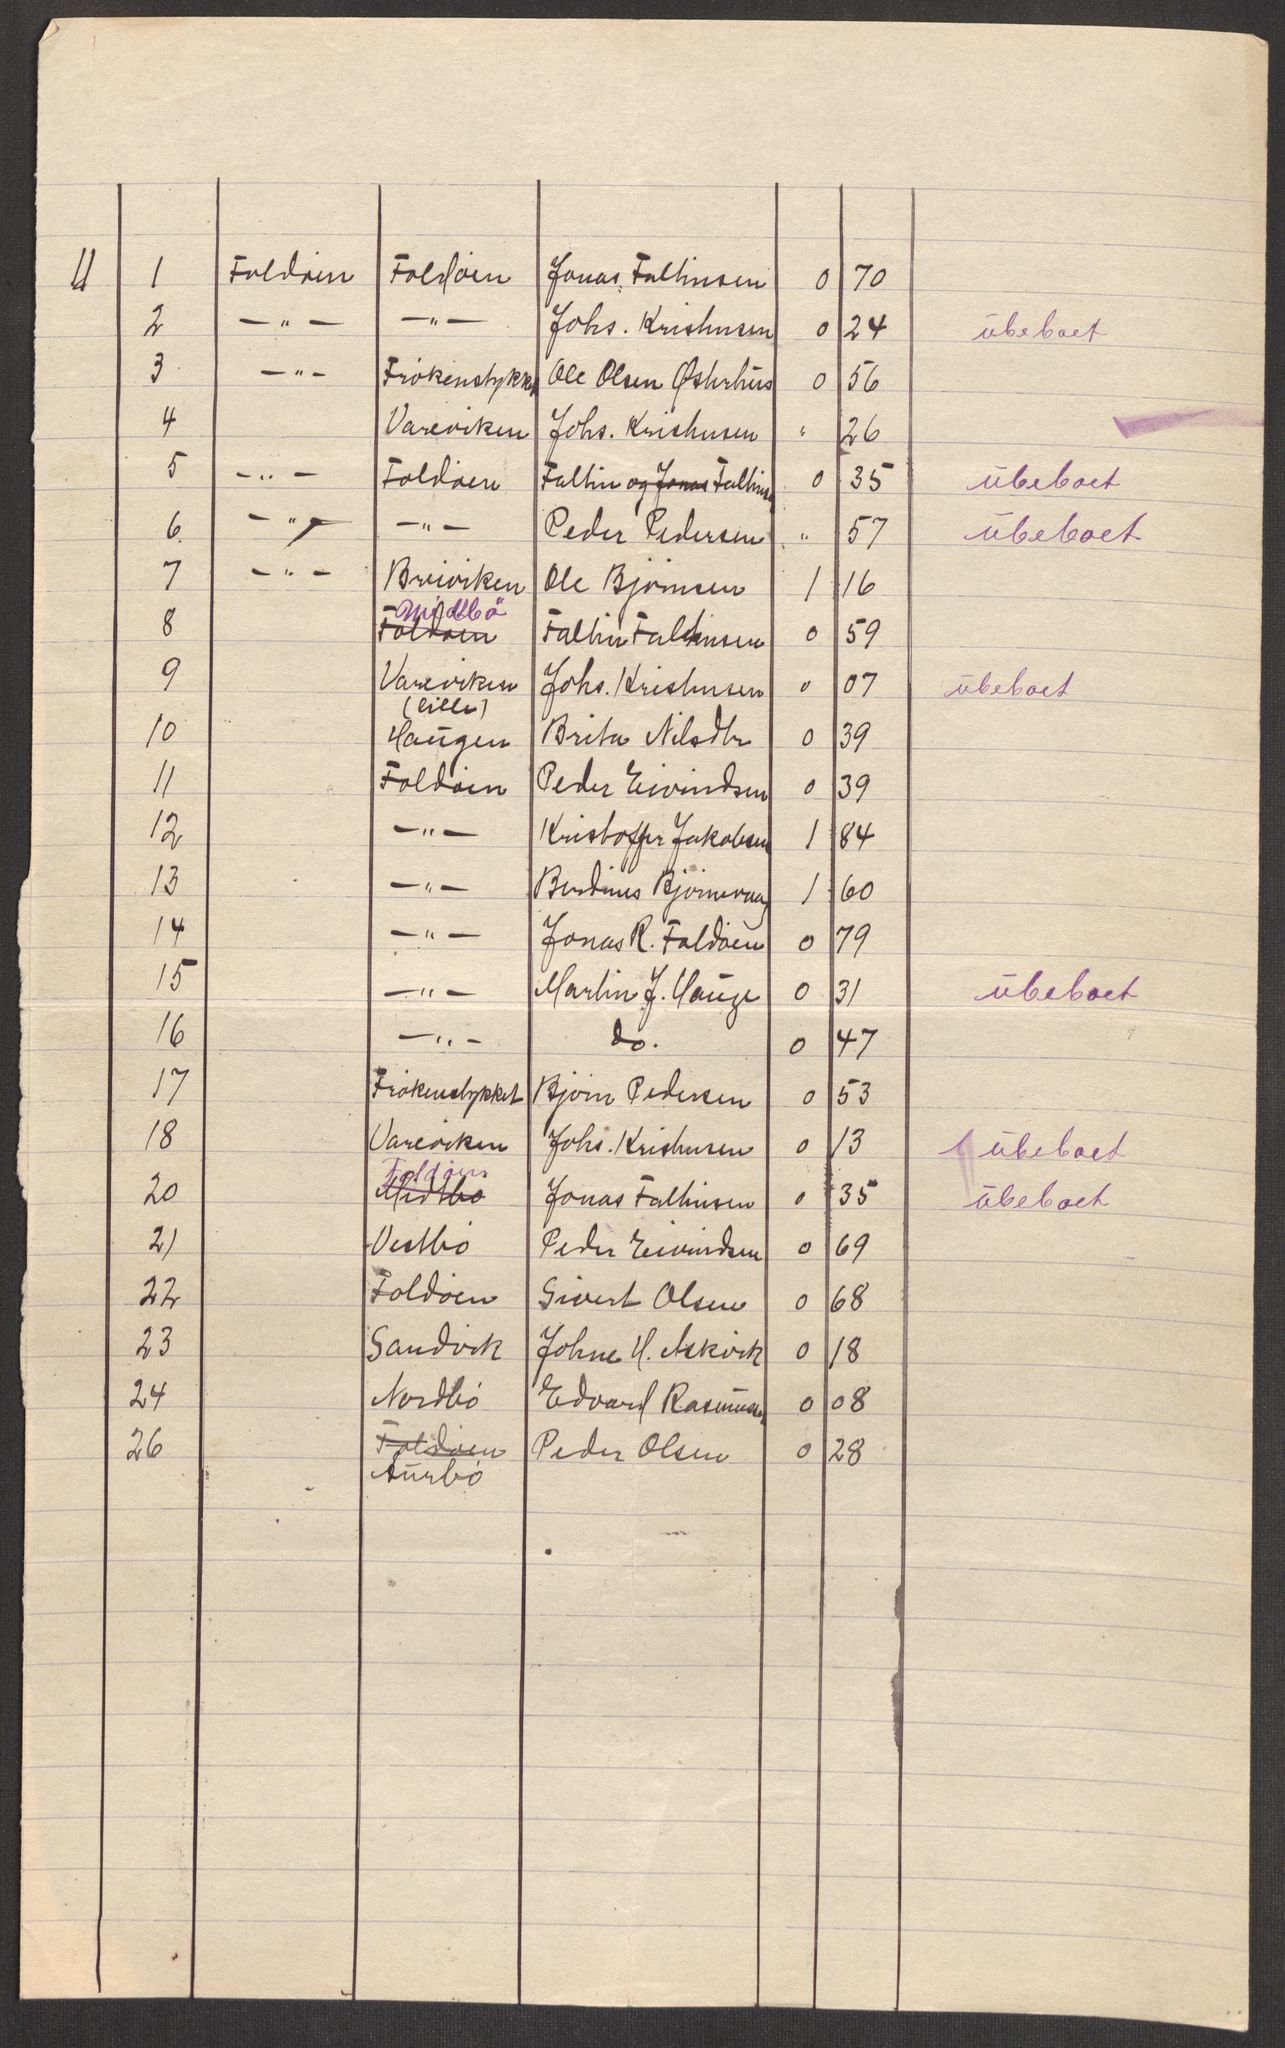 11 1 Foldøen Foldøen Jonas Faltinsen 0 70
2 —"— —"— Johs. Kristensen 0 24 ubeboet
3 —"— Frøkenstykket Ole Olsen Østerhus 0 56
4 Vareviken Johs. Kristensen " 26
5 —"— Foldøen Faltin og Jonas Faltinsen 0 35 ubeboet
6. —"— —"— Peder Pedersen " 57 ubeboet
7 —"— Breiviken Ole Bjørnsen 1 16
Midtbö
8 Foldøen Faltin Faltinsen 0 59
9 Vareviken Johs. Kristensen 0 07 ubeboet
(lille)
10 Haugen Brita Nilsdtr 0 39
11 Foldøen Peder Eivindsen 0 39
12 —"— Kristoffer Jakobsen 1 84
13 —"— Berdines Bjørnevaag 1 60
14 —"— Jonas R. Foldøen 0 79
15 —"— Martin J. Hauge 0 31 ubeboet
16 —"— do. 0 47
17 Frøkenstykket Bjørn Pedersen 0 53
18 Vareviken Johs. Kristensen 0 13 ubeboet
Foldøen
20 Midtbø Jonas Faltinsen 0 35 ubeboet
21 Vestbø Peder Eivindsen 0 69
22 Foldøen Sivert Olsen 0 68
23 Sandvik Johne H. Askvik 0 18
24 Nordbø Edvard Rasmussen 0 08
26 Foldøen Peder Olsen 0 28
Aurbø